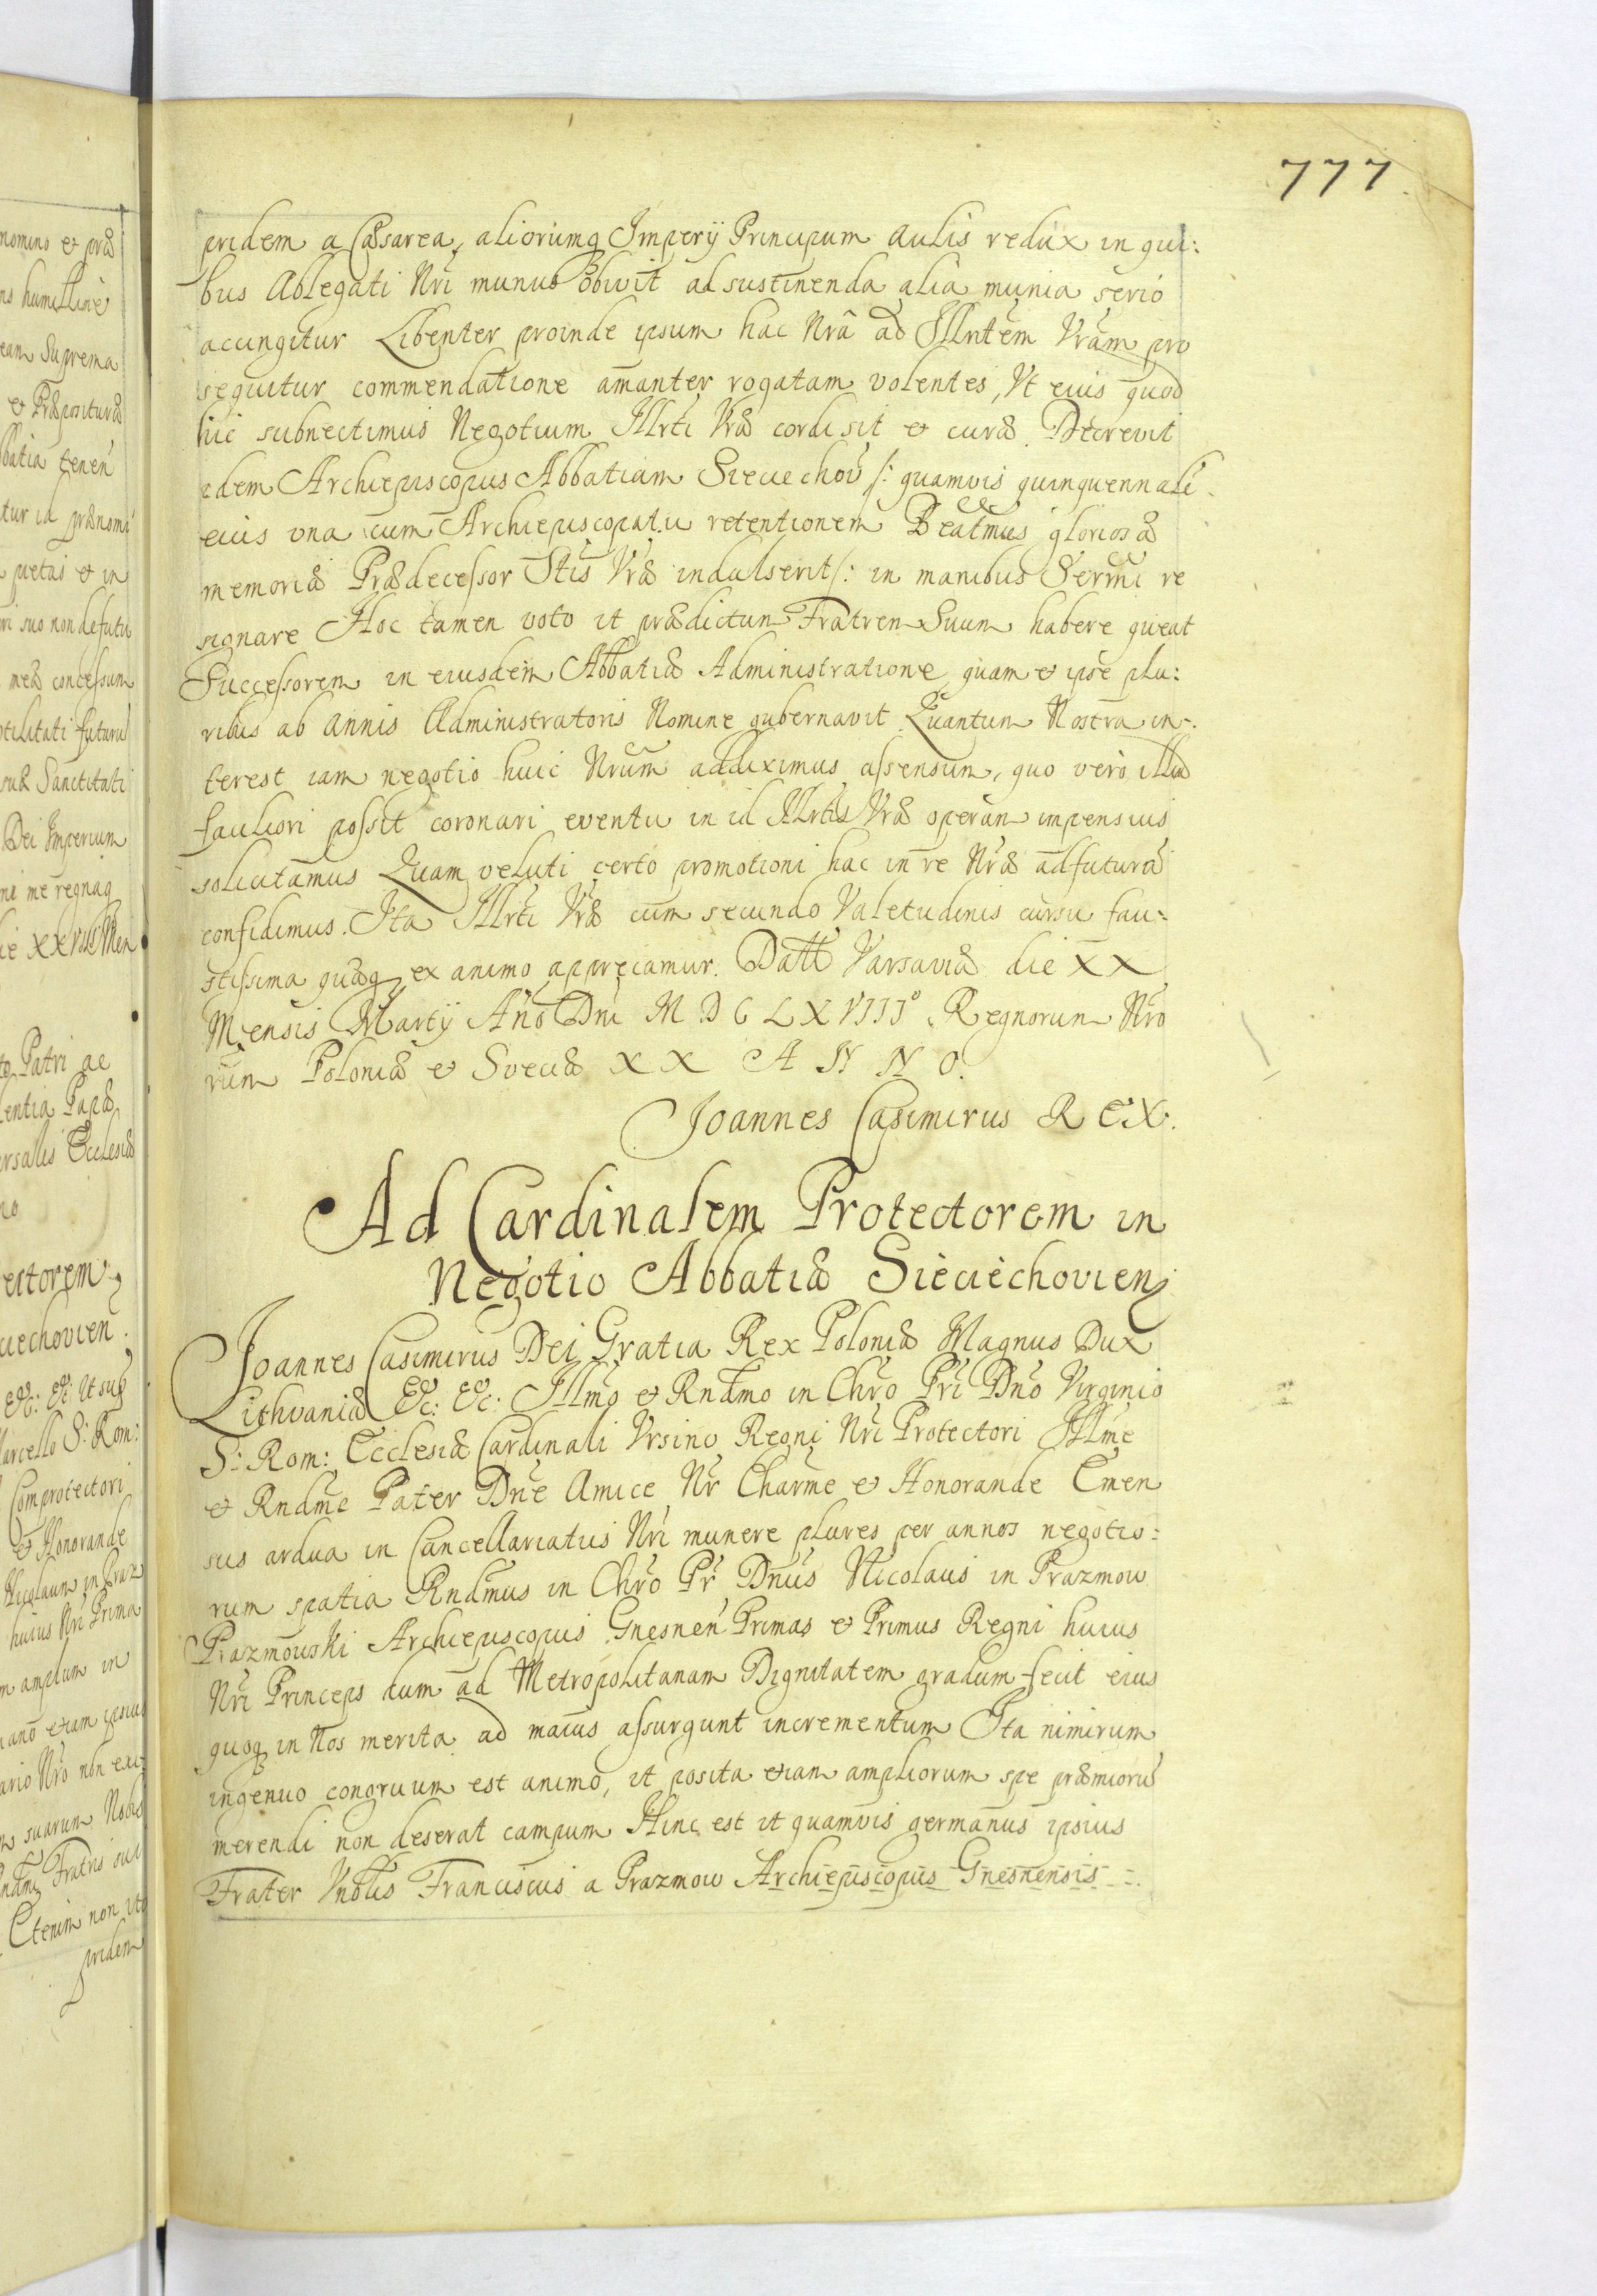 777.
pridem a Cæsarea, aliorumq Imperij Principum aulis redux in qui:
bus Ablegati Nri munus obivit ad sustinenda alia munia serio
accingitur Libenter proinde ipsum hac Nrâ ad Illrtem Vram pro
sequitur commendatione amanter rogatam volentes, Vt eius quod
hic subnectimus Negotium Illrti Vræ cordi sit et curæ. Decrevit
idem Archiepiscopus Abbatiam Sieciechov /: quamvis quinquennali
eius una cum Archiepiscopatu retentionem Beatmus gloriosæ
memoriæ Prædecessor Stis Vræ indulserit /: in manibus Sermi re
signare Hoc tamen voto ut prædictum Fratrem Suum habere queat
Successorem in eiusdem Abbatiæ Administratione, quam et ipse plu:
ribus ab annis Administratoris Nomine gubernavit Quantum Nostra in:
terest iam negotio huic Nrum addiximus assensum, quo vero illud
fauliori possit coronari eventu in id Illrtis Vræ operam impensius
solicitamus Quam veluti certo promotioni hac in re Nræ adfuturā
confidimus. Ita Illrti Vræ cum secundo Valetudinis cursu fau:
stissima quæq ex animo appreciamur. Datt Varsaviæ die XX
Mensis Martij Año Dni M D C L X VIIIº Regnorum Nro
rum Poloniæ et Sveciæ X X A N N O.
Joannes Casimirus R E X.
Ad Cardinalem Protectorem in
Negotio Abbatiæ Sieciechovien
Joannes Casimirus Dei Gratia Rex Poloniæ Magnus Dux
Lithvaniæ &c: &c: Illmo et Rndmo in Chro Pri Dno Virginio
S: Rom: Ecclesiæ Cardinali Vrsino Regni Nri Protectori Illme
et Rndme Pater Dne Amice Nr Charme et Honorande Emen
sus ardua in Cancellariatus Nri munere plures per annos negotio:
rum spatia Rndmus in Chro Pr Dnus Nicolaus in Prazmow
Prazmowski Archiepiscopus Gnesnen Primas et Primus Regni huius
Nri Princeps dum ad Metropolitanam Dignitatem gradum fecit eius
quoq in Nos merita ad maius assurgunt incrementum Ita nimirum
ingenuo congruum est animo, ut posita etiam ampliorum spe præmiorū
merendi non deserat campum Hinc est ut quamvis germanus ipsius
Frater Vnblis Franciscus a Prazmow Archiepiscopus Gnesnensis